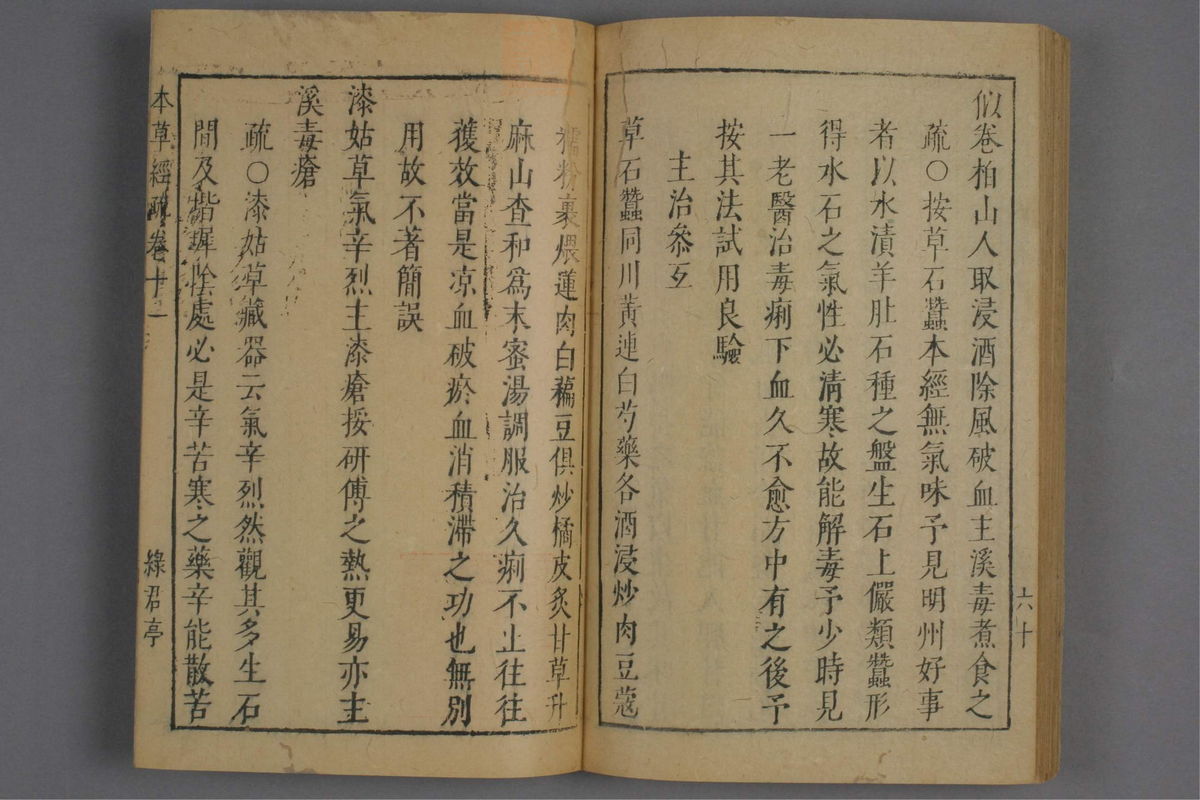 似卷柏山人取浸酒除風破血主溪毒煮食之
疏○按草石蠶本經無氣味予見明州好事
者以水漬羊肚石種之盤生石上儼類蠶形
得水石之氣性必清寒故能解毒予少時見
一老醫治毒痢下血久不愈方中有之後予
按其法試用良驗
主治叅互
草石蠶同川黃連白芍藥各酒浸炒肉豆蔻
糯粉裹煨蓮肉白藊豆俱炒橘皮炙甘草升
麻山查和爲末蜜湯調服治久痢不止往往
獲效當是凉血破瘀血消積滯之功也無別
用故不著簡誤
漆姑草氣辛烈主漆瘡挼研傅之熱更易亦主
溪毒瘡
疏○漆姑草藏器云氣辛烈然觀其多生石
間及堦墀陰處必是辛苦寒之藥辛能散苦
六十
本草經疏卷十一
綠君亭